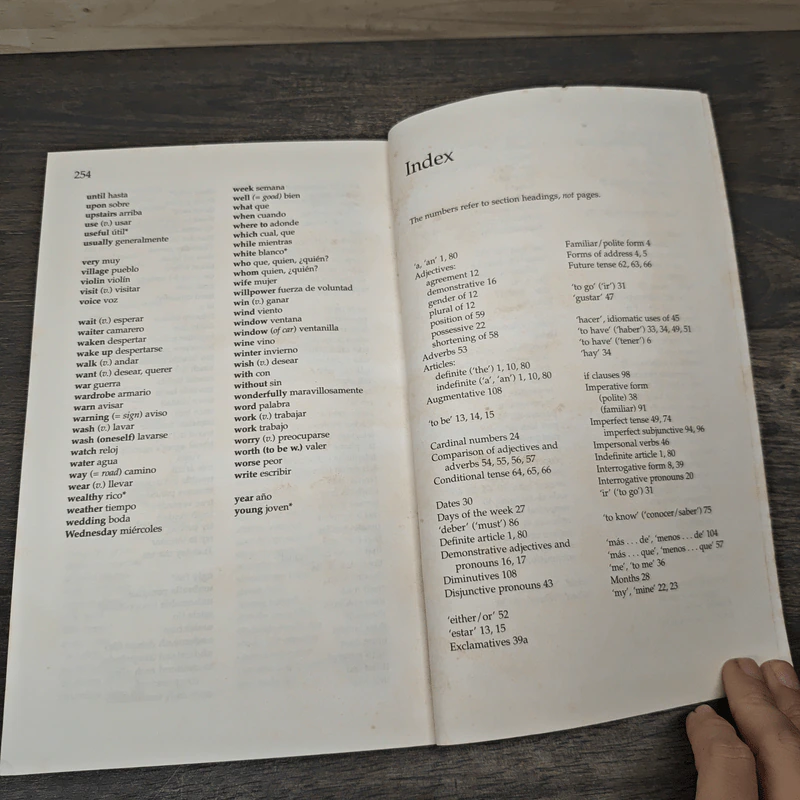 254
until hasta
upon sobre
upstairs arriba
use (v.) usar
useful útil*
usually generalmente
very muy
village pueblo
violin violín
visit (v.) visitar
voice voz
wait (v.) esperar
waiter camarero
waken despertar
wake up despertarse
walk (v.) andar
want (v.) desear, querer
war guerra
wardrobe armario
warn avisar
warning (= sign) aviso
wash (v.) lavar
wash (oneself) lavarse
watch reloj
water agua
way (= road) camino
wear (v.) llevar
wealthy rico*
weather tiempo
wedding boda
Wednesday miércoles
week semana
well (= good) bien
what que
when cuando
where to adonde
which cual, que
while mientras
white blanco*
who que, quien, ¿quién?
whom quien, ¿quién?
wife mujer
willpower fuerza de voluntad
win (v.) ganar
wind viento
window ventana
window (of car) ventanilla
wine vino
winter invierno
wish (v.) desear
with con
without sin
wonderfully maravillosamente
word palabra
work (v.) trabajar
work trabajo
worry (v.) preocuparse
worth (to be w.) valer
worse peor
write escribir
year año
young joven*
Index
The numbers refer to section headings, not pages.
'a, 'an' 1, 80
Adjectives:
agreement 12
demonstrative 16
gender of 12
plural of 12
position of 59
possessive 22
shortening of 58
Adverbs 53
Articles:
definite ('the') 1, 10, 80
indefinite ('a', 'an') 1, 10, 80
Augmentative 108
'to be' 13, 14, 15
Cardinal numbers 24
Comparison of adjectives and
adverbs 54, 55, 56, 57
Conditional tense 64, 65, 66
Dates 30
Days of the week 27
'deber' ('must') 86
Definite article 1, 80
Demonstrative adjectives and
pronouns 16, 17
Diminutives 108
Disjunctive pronouns 43
'either/or' 52
'estar' 13, 15
Exclamatives 39a
Familiar/polite form 4
Forms of address 4, 5
Future tense 62, 63, 66
'to go' ('ir') 31
'gustar' 47
'hacer', idiomatic uses of 45
'to have' ('haber') 33, 34, 49, 51
'to have' ('tener') 6
'hay' 34
if clauses 98
Imperative form
(polite) 38
(familiar) 91
Imperfect tense 49, 74
imperfect subjunctive 94, 96
Impersonal verbs 46
Indefinite article 1, 80
Interrogative form 8, 39
Interrogative pronouns 20
'ir' ('to go') 31
'to know' ('conocer/saber') 75
'más . . . de', 'menos . . . de' 104
'más . . . que', 'menos . . . que' 57
'me', 'to me' 36
Months 28
'my', 'mine' 22, 23